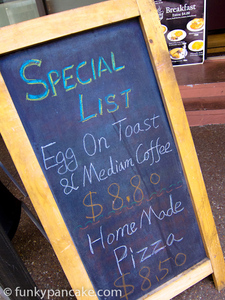 Breakfast
SPECIAL
LIST
Egg On Toast
& Median Coffee
$8.80
Home Made
Pizza
$8.50
© funkypancake.com